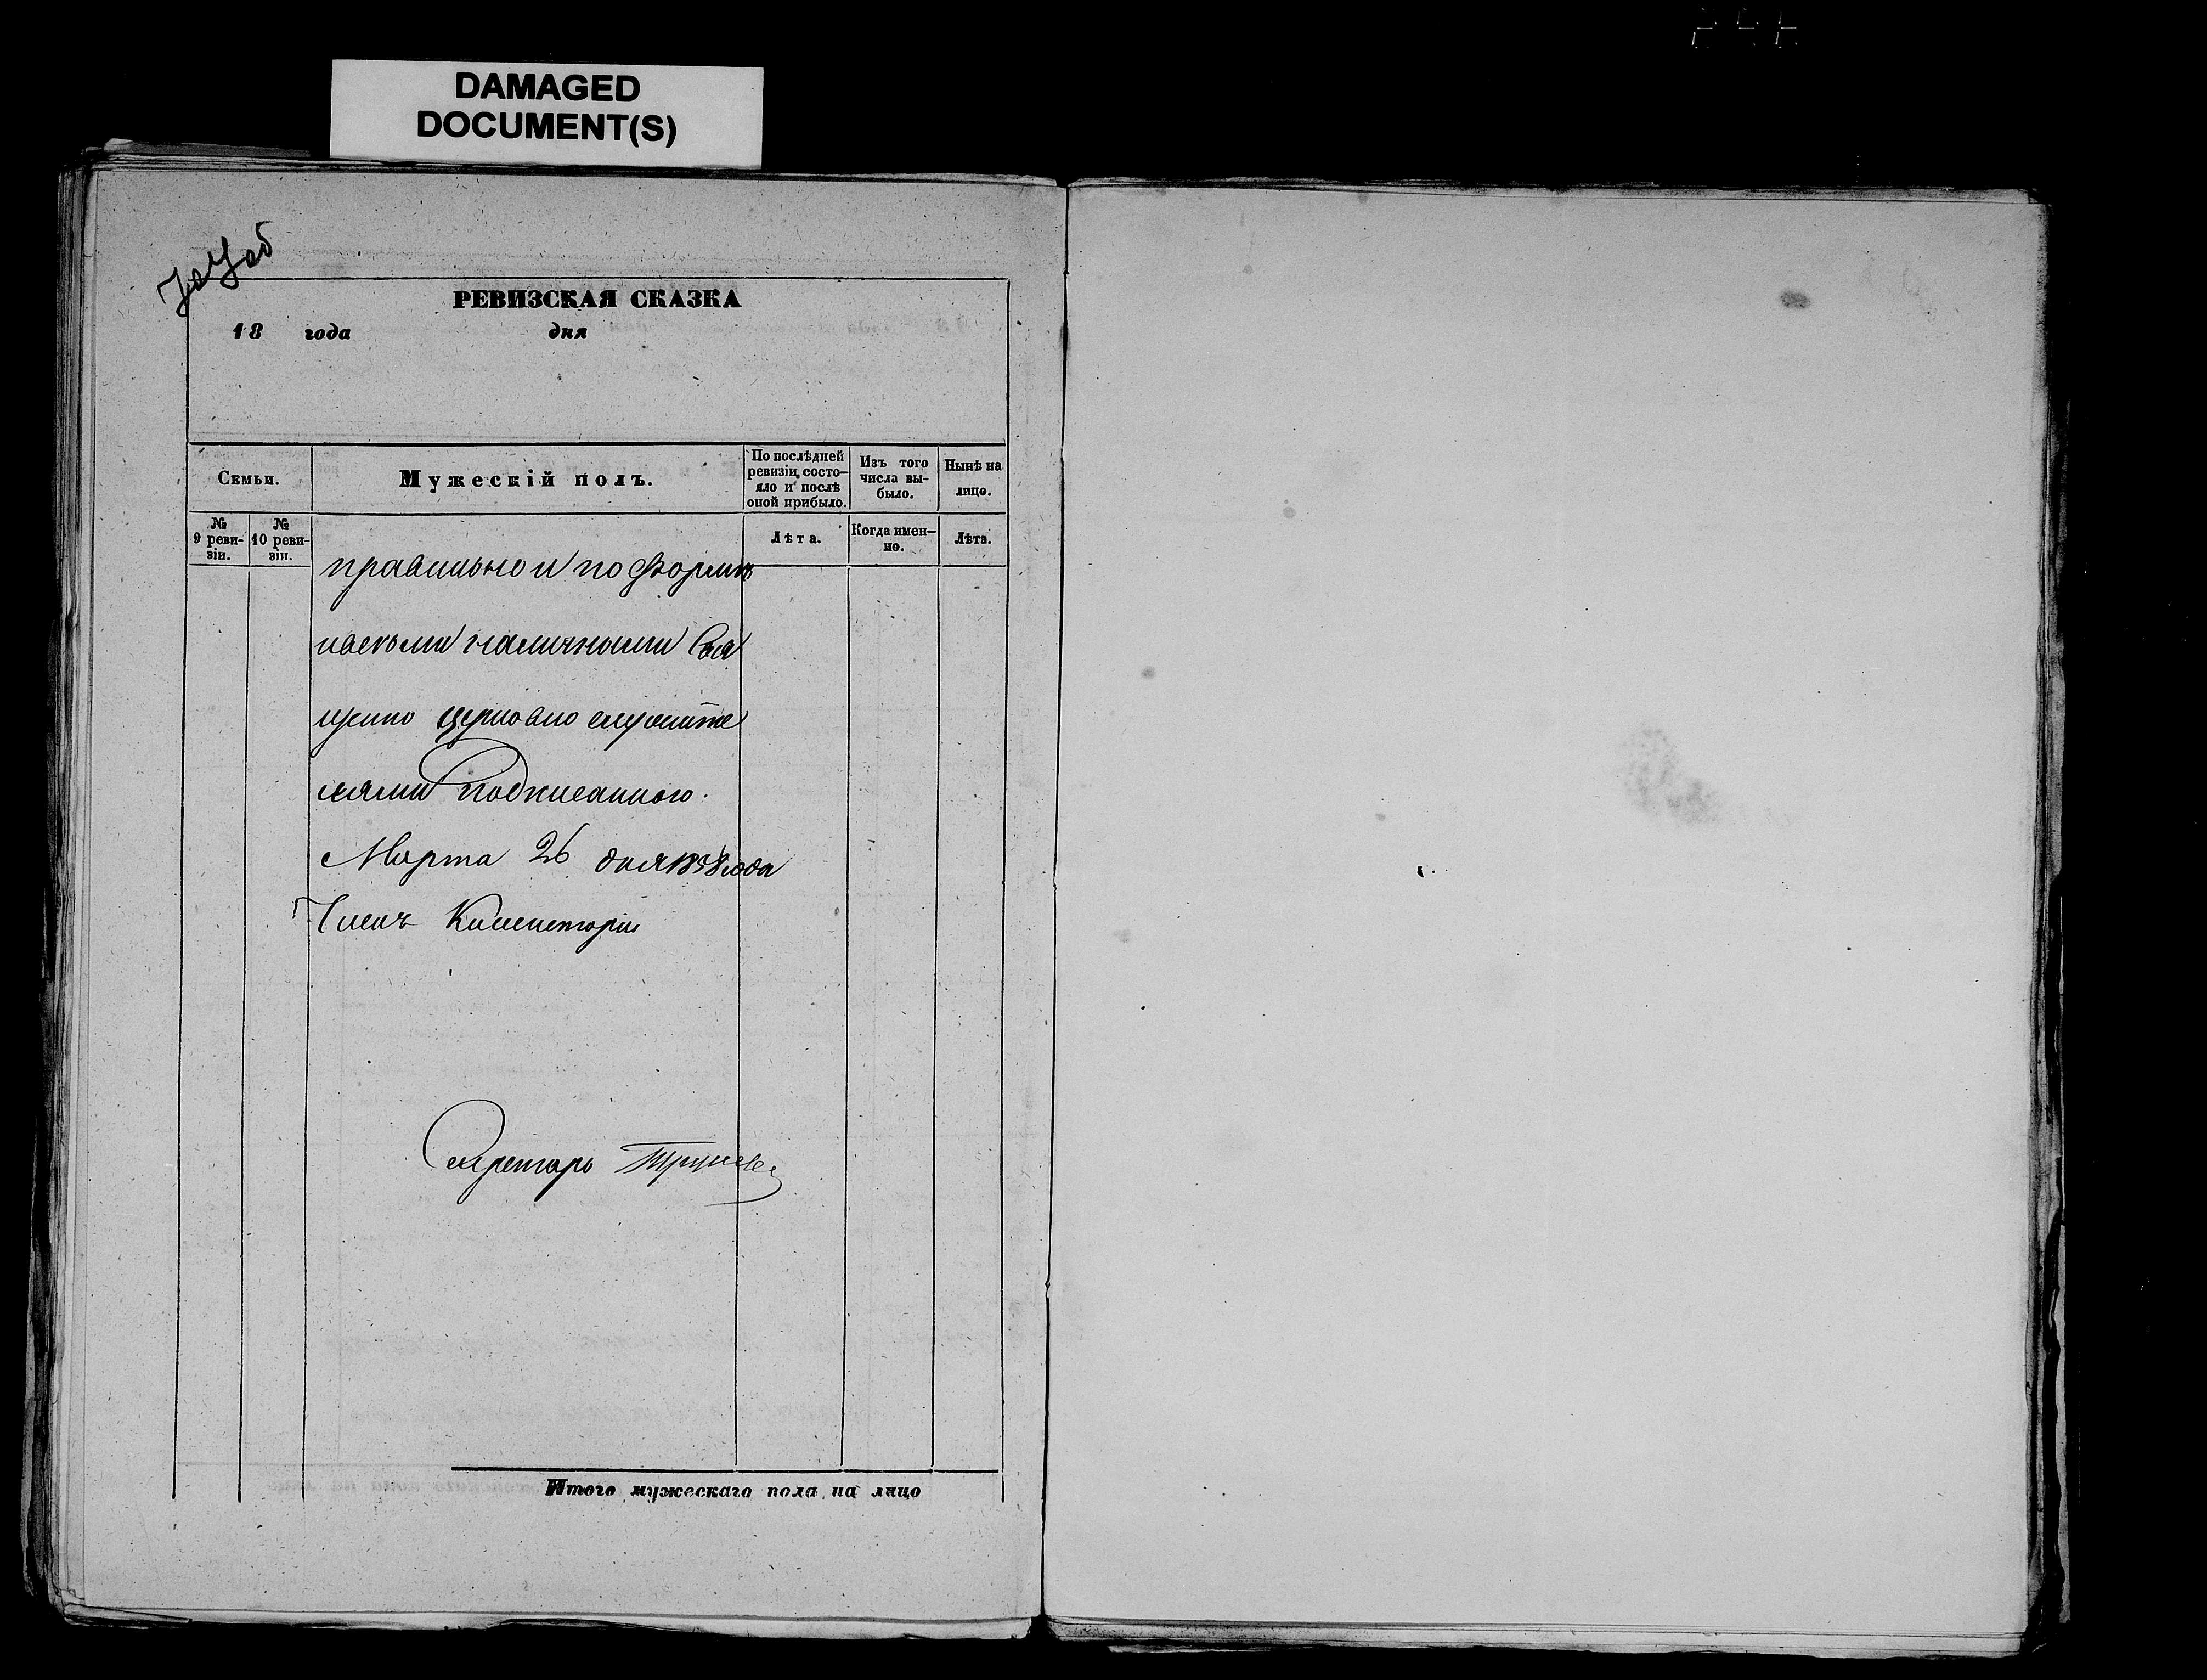 DAMAGED
DOCUMENT(S)
РЕВИЗСКАЯ СКАЗКА
18 года дня
Семьи.
Мужескій полъ.
По послѣдней
ревизіи состо-
яло и послѣ
оной прибыло.
Изъ того
числа вы-
было.
Нынѣ на
лицо.
№
9 реви-
зіи.
№
10 реви-
зіи.
Лѣта.
Когда имен-
но.
Лѣта.
правильно и по форме
и всеми наличными Свя
щенно церковно служите
лями подписанного.
Марта 26 дня 1858 года
Членъ Консисторіи
Секретарь
Итого мужескаго пола на лицо